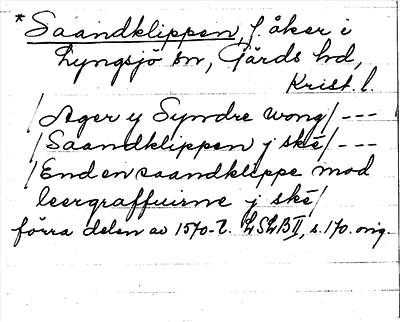 *Saandklippen, f. åker i
Lyngsjö sn, Gärds hd,
Krist. l.
/Ager y Syndre wong/ ---
/Saandklippen j ské/ ---
/End en saandklippe mod
leergraffuirne j ské/
förra delen av 1570-t. LSLB II, s. 170. orig.